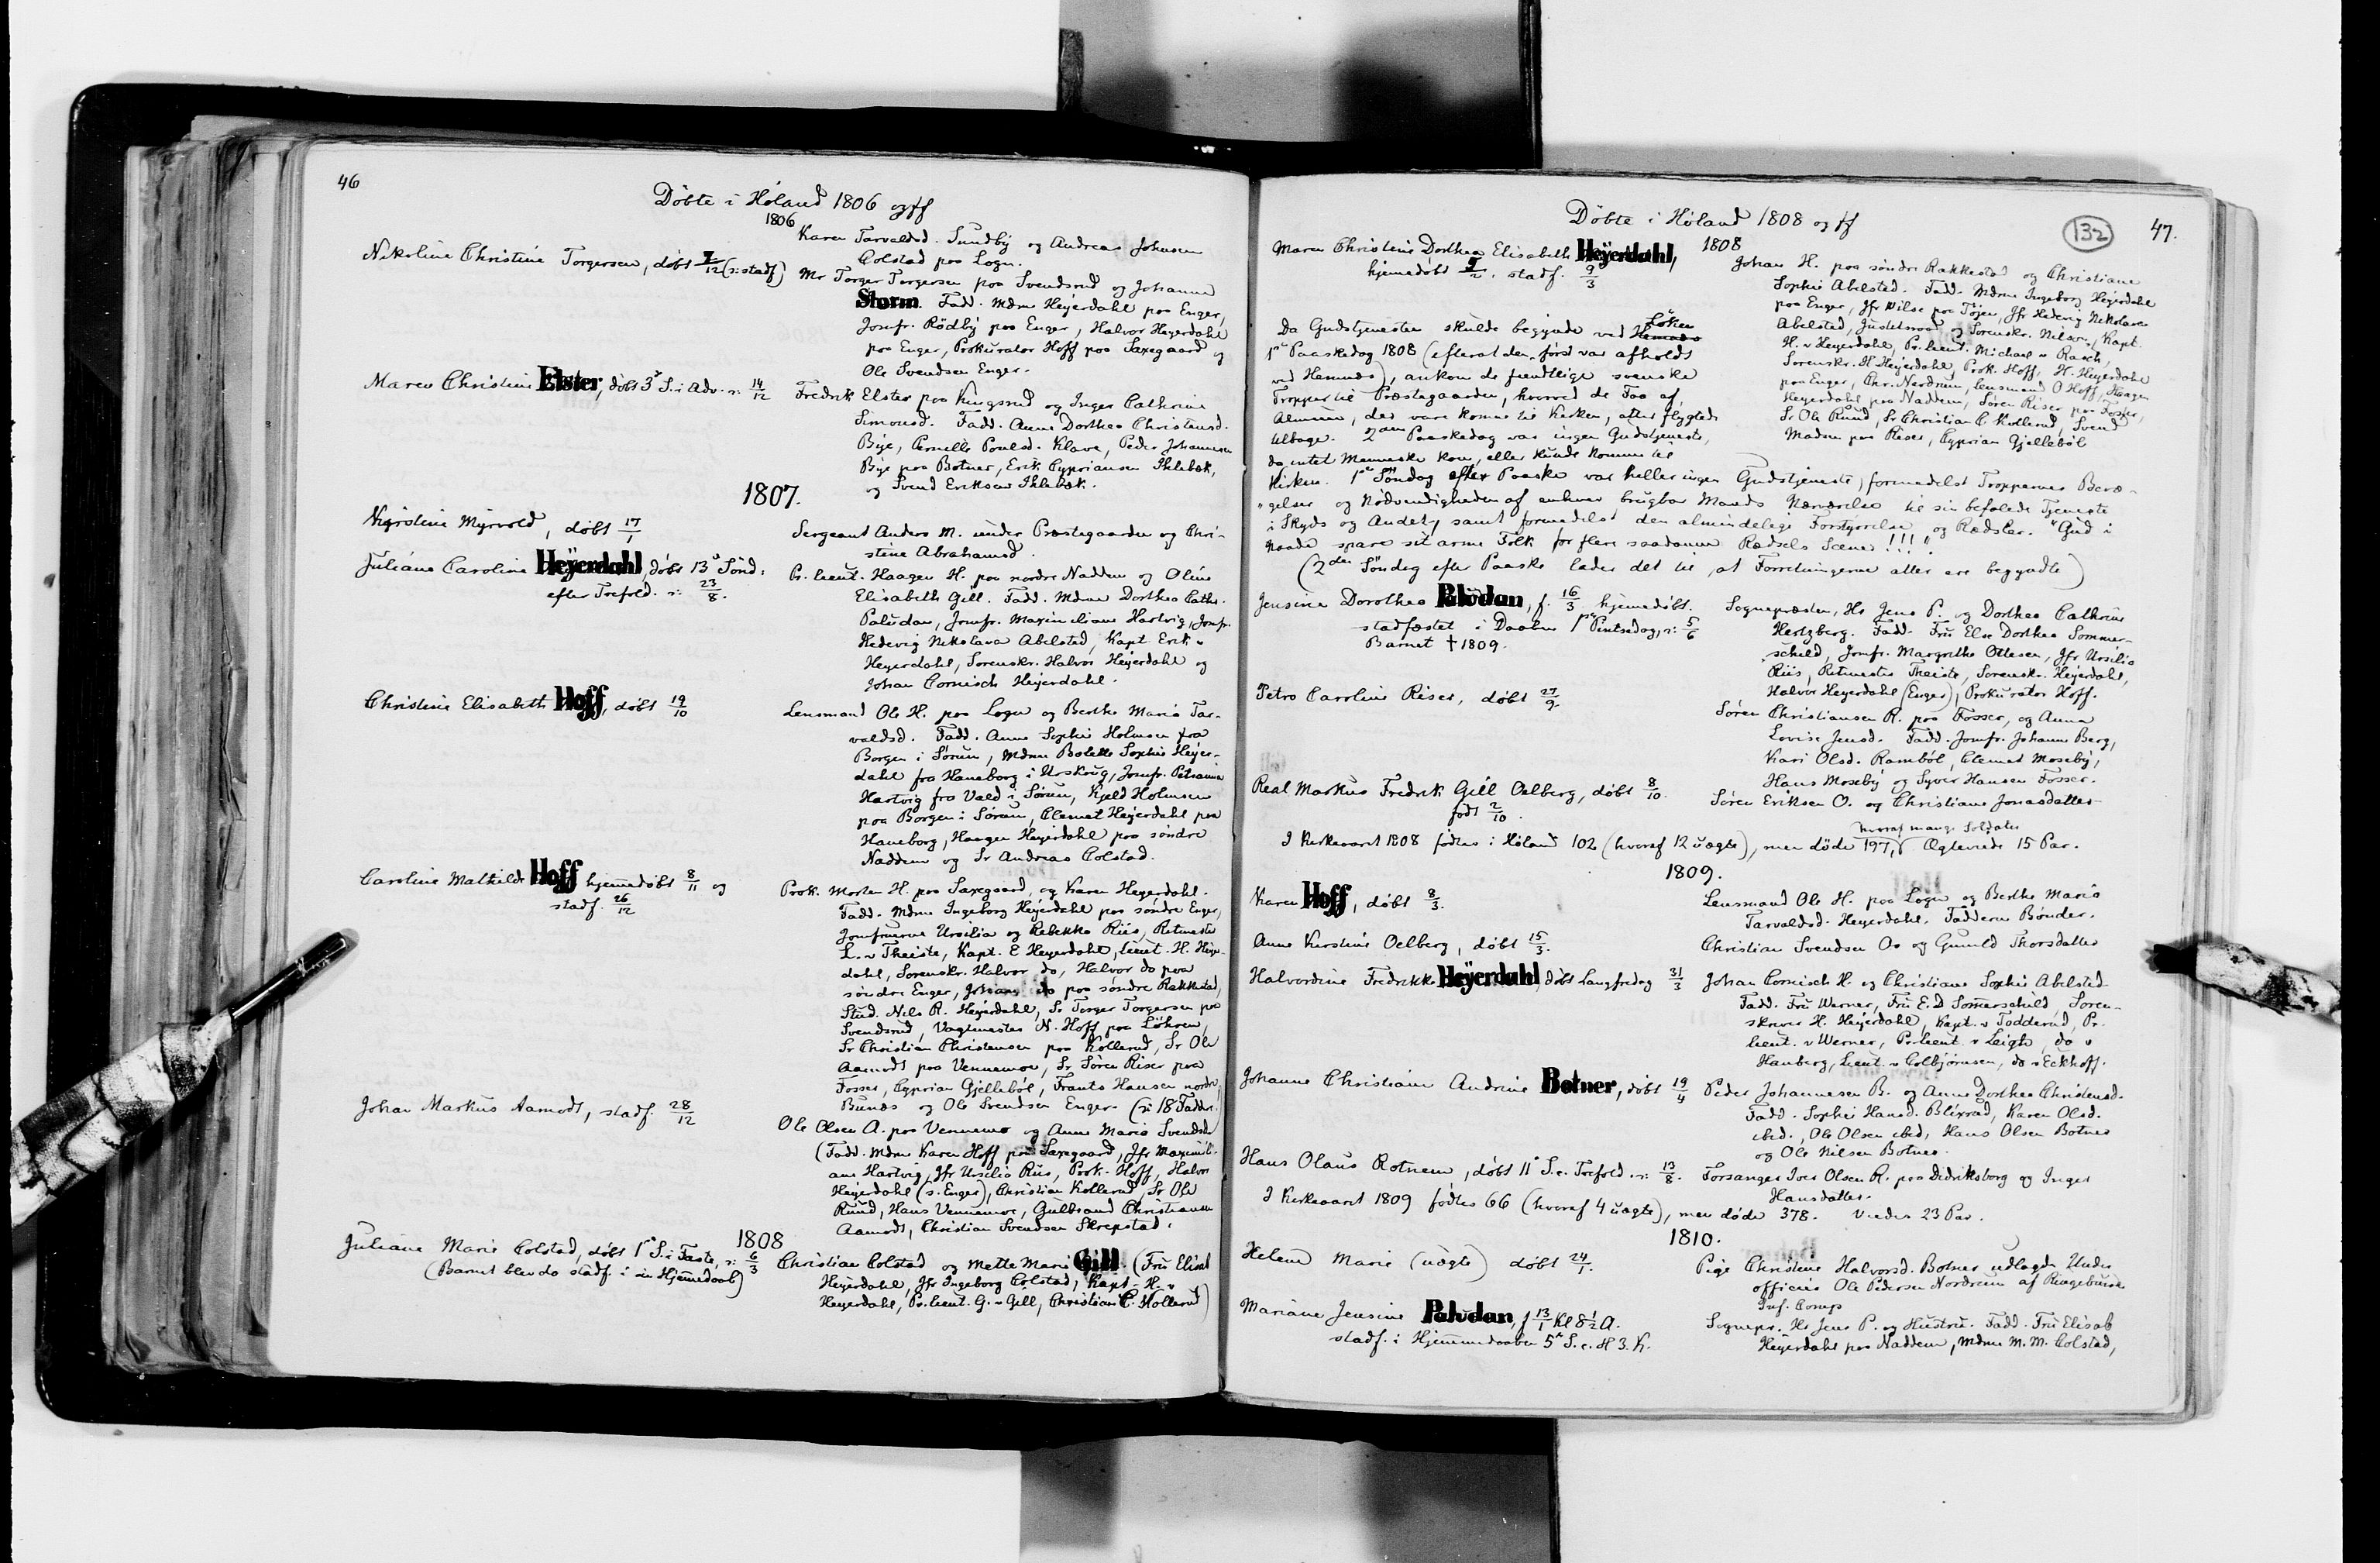 46
Döbte i Höland 1806 og ff
1806
Karen Tarvaldsd. Sundby og Andreas Johnsen
Colstad paa Logn.
Nikoline Christine Torgersen, döbt 7/12 (s: stadf)
Mr Torger Torgersen paa Svendsrud og Johanne
Storm. Fadd. Mdme Heÿerdahl paa Enger,
Jomfr. Rödbÿ paa Enger, Halvor Heyerdahl
paa Enger, Prokurator Hoff paa Saxegaard og
Ole Svendsen Enger.
Maren Christine Elster, döbt 3die S. i Adv. s: 14/12
Fredrik Elster paa Kingsrud og Inger Cathrine
Simonsd. Fadd. Anne Dorthea Christensd.
Bÿe, Pernelle Poulsd. Klave, Peder Johannesen
Bye paa Botner, Erik Cyprianson Ihlebæk,
og Svend Eriksen Ihlebæk.
1807.
Kjerstine Myrvold, döbt 17/1
Sergeant Anders M. under Præstegaarden og Chri-
stine Abrahamsd.
Juliane Caroline Heÿerdahl, döbt 13de Sönd.
efter Trefold. s: 23/8.
Pr. Lieut. Haagen H. paa nordre Naddum og Oline
Elisabeth Gill. Fadd. Mdme Dorthea Cathr.
Paludan, Jomfr. Maximiliane Hartvig, Jomfr.
Hedevig Nikolava Abelsted, Kapt. Erik v
Heyerdahl, Sorenskr. Halvor Heÿerdahl og
Johan Cornisch Heÿerdahl.
Christine Elisabeth Hoff, döbt 19/10
Lensmand Ole H. paa Logn og Berthe Maria Tar-
valdsd. Fadd. Anne Sophie Holmsen fra
Borgen i Sörum, Mdme Bolette Sophie Heÿer-
dahl fra Haneborg i Urskoug, Jomfr. Petramine
Hartvig fra Vald i Sörum, Kjeld Holmsen
paa Borgen i Sörum, Clemet Heÿerdahl paa
Haneborg, Haagen Heyerdahl paa söndre
Naddum og Sr Andreas Colstad.
Caroline Mathilde Hoff hjemedöbt 8/11 og
stadf. 26/12
Prok. Morten H. paa Saxegaard, og Karen Heyerdahl.
Fadd. Mdme Ingeborg Heÿerdahl paa söndre Enger,
Jomfruerne Ursilia og Rebekka Riis, Ritmester
L. v Theiste, Kapt. E Heyerdahl, Lieut. H. Heÿer-
dahl, Sorenskr. Halvor do, Halvor do paa
söndre Enger, Johan do paa söndre Rakkestad,
Stud. Nils R. Heÿerdahl, Sr Torger Torgersen paa
Svendsrud, Vagtmester N. Hoff paa Löhren,
Sr Christian Christensen paa Kollerud, Sr Ole
Aamodt paa Vennemoe, Sr Sören Riser paa
Fosser, Cyprian Gjelleböl, Frants Hansen nordre
Bunæs og Ole Svendsen Enger. (s: 18 Faddr.)
Johan Markus Aamodt, stadf. 28/12
Ole Olsen A. paa Vennemo og Anne Maria Svendsd.
(Fadd. Mdme Karen Hoff paa Saxegaard, Jfr Maximili-
ane Hartvig, Jfr Ursilia Riis, Prok. Hoff, Halvor
Heÿerdahl (s. Enger), Christian Kollerud, Sr Ole
Rund, Hans Vennemoe, Gulbrand Christiansen
Aamodt, Christian Svendsen Skrepstad.
1808
Juliane Marie Colstad, döbt 1ste S. i Faste, s: 6/3
(Barnet blev da stadf. i sin Hjemmedaab)
Christian Colstad og Mette Marie Gill. (Fru Elisab
Heÿerdahl, Jfr Ingeborg Colstad, Kapt. H. v
Heyerdahl, Pr. Lieut. G. v Gill, Christian C. Kollerud)
Döbte i Höland 1808 og ff
132
47.
1808
Maren Christine Dorthea Elisabeth Heÿerdahl,
hjemedöbt 9/2, stadf. 9/3
Johan H. paa söndre Rakkestad og Christiane
Sophie Abelsted. Fadd. Mdme Ingeborg Heyerdahl
paa Enger, Jfr Wilse paa Töien, Jfr Hedevig Nikolava
Abelsted, Justitsraad og Sorenskr. Nilsen, Kapt.
H. v Heyerdahl, Pr. Lieut. Michael v Rasch,
Sorenskr. H Heÿerdahl, Prok. Hoff, H. Heyerdahl
paa Enger, Chr. Nerdrum, Lensmand O Hoff, Haagen
Heyerdahl paa Naddum, Sören Riser paa Fosser,
Sr Ole Rund, Sr Christian C. Kollerud, Svend
Madsen paa Riser, Cyprian Gjelleböl
Da Gudstjenesten skulde begynde ved Löken
1ste Paaskedag 1808 (efterat den först var afholdt
ved Hemnæs), ankom de fiendtlige svenske
Tropper til Præstegaarden, hvorved de Faa af
Almuen, der vare komne til Kirken, atter flygtede
tilbage. 2den Paaskedag var ingen Gudstjeneste,
da intet Menneske kom, eller kunde komme til
Kirken. 1ste Söndag efter Paaske var heller ingen Gudstjeneste, formedelst Troppernes Bevæ-
gelser og Nödvendigheden af enhver brugbar Mands Nærværelse til sin befalede Tjeneste
i Skyds og Andet, samt formedelst den almindelige Forstyrrelse og Rædsler. "Gud i
Naade spare sit arme Folk for flere saadanne Rædsels Scener!!!"
(2den Söndag efter Paaske lader det til, at Forretningerne atter ere begyndte)
Jensine Dorothea Paludan, f. 16/3 hjemedöbt.
stadfæstet i Daaben 1ste Pintsedag, s: 5/6
Barnet † 1809.
Sognepræsten, Hr Jens P. og Dorthea Cathrine
Hertzberg. Fadd. Fru Else Dorthea Sommer-
schild, Jomfr. Margrethe Ottesen, Jfr Ursilia
Riis, Ritmester Theiste, Sorenskr. Heÿerdahl,
Halvor Heyerdahl (Enger), Prokurator Hoff.
Petra Caroline Riser, döbt 27/9
Sören Christiansen R. paa Fosser, og Anna
Lovise Jensd. Fadd. Jomfr. Johanne Berg,
Kari Olsd. Ramböl, Clemet Mosebÿ,
Hans Mosebÿ og Syver Hansen Fosser.
Real Markus Fredrik Gill Oelberg, döbt 8/10.
födt 2/10.
Sören Eriksen O. og Christiane Jonasdatter
I Kirkeaaret 1808 födtes i Höland 102 (hvoraf 12 uægte), men döde 197, hvoraf mange Soldater Ægteviede 15 Par.
1809.
Karen Hoff, döbt 8/3.
Lensmand Ole H. paa Logn og Berthe Maria
Tarvaldsd. Heyerdahl. Fadderne Bönder.
Anne Kirstine Oelberg, döbt 15/3.
Christian Svendsen Oe og Gunild Thorsdatter
Halvordine Fredrikke Heÿerdahl, döbt Langfredag 31/3
Johan Cornisch H. og Christiane Sophie Abelsted
Fadd. Fru Werner, Fru E. D Somerschild, Soren-
skriver H. Heÿerdahl, Kapt. v Todderud, Pr.
Lieut. v Werner, Pr. Lieut. v Leigh, do v
Hauberg, Lieut. v Colbjörnsen, do v Eckhoff.
Johanne Christiane Andrine Botner, döbt 19/4
Peder Johannesen B. og Anne Dorthea Christensd.
Fadd. Sophie Hansd. Blixrud, Karen Olsd.
ibid., Ole Olsen ibid, Hans Olsen Botner
og Ole Nilsen Botner.
Hans Olaus Rotnem, döbt 11te S. e. Trefold. s: 13/8.
Forsanger Iver Olsen R. paa Didriksborg og Inger
Hansdatter.
I Kirkeaaret 1809 födtes 66 (hvoraf 4 uægte), men döde 378. Viedes 23 Par.
1810.
Helene Marie (uægte) döbt 24/1.
Pige Christine Halvorsd. Botner udlagde Under
officier Ole Pedersen Nordrum af Ringebuske
Inf. Comp
Mariane Jensine Paludan, f 13/1 Kl 8½ A.
stadf. i Hjemmedaaben 5te S. e. H 3. K.
Sognepr. Hr Jens P. og Hustru. Fadd. Fru Elisab
Heÿerdahl paa Naddum, Mdme M. M. Colstad,